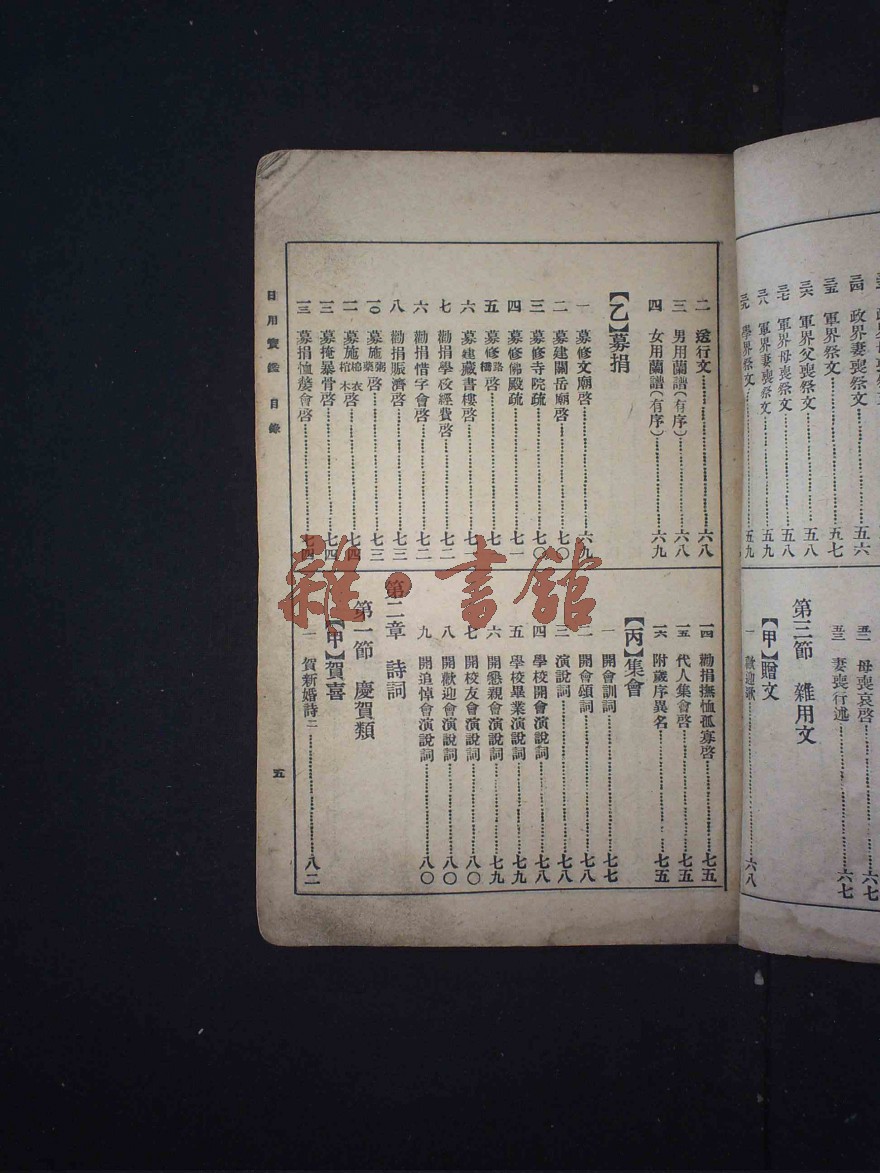 三四 政界妻喪祭文……五六
三五 軍界祭文……五七
三六 軍界父喪祭文……五八
三七 軍界母喪祭文……五八
三八 軍界妻喪祭文……五九
三九 學界祭文……五九
五二 母喪哀啓……六七
五三 妻喪行述……六七
第三節 雜用文
【甲】贈文
一 歡迎詞……六八
二 送行文……六八
三 男用蘭譜(有序)……六八
四 女用蘭譜(有序)……六九
【乙】募捐
一 募修文廟啓……六九
二 募建關岳廟啓……七〇
三 募修寺院疏……七〇
四 募修佛殿疏……七一
五 募修路橋啓……七
六 募建藏書樓啓……七
七 勸捐學校經費啓……七二
六 勸捐惜字會啓……七二
八 勸捐賑濟啓……七三
一〇 募施粥藥啓……七三
一一 募施棉衣棺木啓……七四
一二 募掩暴骨啓……七四
一三 募捐恤嫠會啓……七四
一四 勸捐撫恤孤寡啓……七五
一五 代人集會啓……七五
一六 附歲序異名……七五
【丙】集會
一 開會訓詞……七七
二 開會頌詞……七八
三 演說詞……七八
四 學校開會演說詞……七八
五 學校畢業演說詞……七九
六 開懇親會演說詞……七九
七 開校友會演說詞……八〇
八 開歡迎會演說詞……八〇
九 開追悼會演說詞……八〇
第二章 詩詞
第一節 慶賀類
【甲】賀喜
一 賀新婚詩二……八二
日用寶鑑 目錄
五
雜·書館